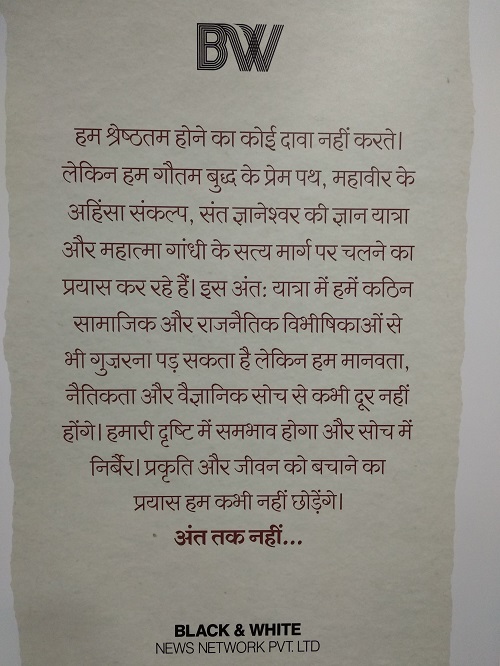 BW
हम श्रेष्ठतम होने का कोई दावा नहीं करते।
लेकिन हम गौतम बुद्ध के प्रेम पथ, महावीर के
अहिंसा संकल्प, संत ज्ञानेश्वर की ज्ञान यात्रा
और महात्मा गांधी के सत्य मार्ग पर चलने का
प्रयास कर रहे हैं। इस अंत: यात्रा में हमें कठिन
सामाजिक और राजनैतिक विभीषिकाओं से
भी गुज़रना पड़ सकता है लेकिन हम मानवता,
नैतिकता और वैज्ञानिक सोच से कभी दूर नहीं
होंगे। हमारी दृष्टि में समभाव होगा और सोच में
निर्बैर। प्रकृति और जीवन को बचाने का
प्रयास हम कभी नहीं छोड़ेंगे।
अंत तक नहीं...
BLACK & WHITE
NEWS NETWORK PVT. LTD